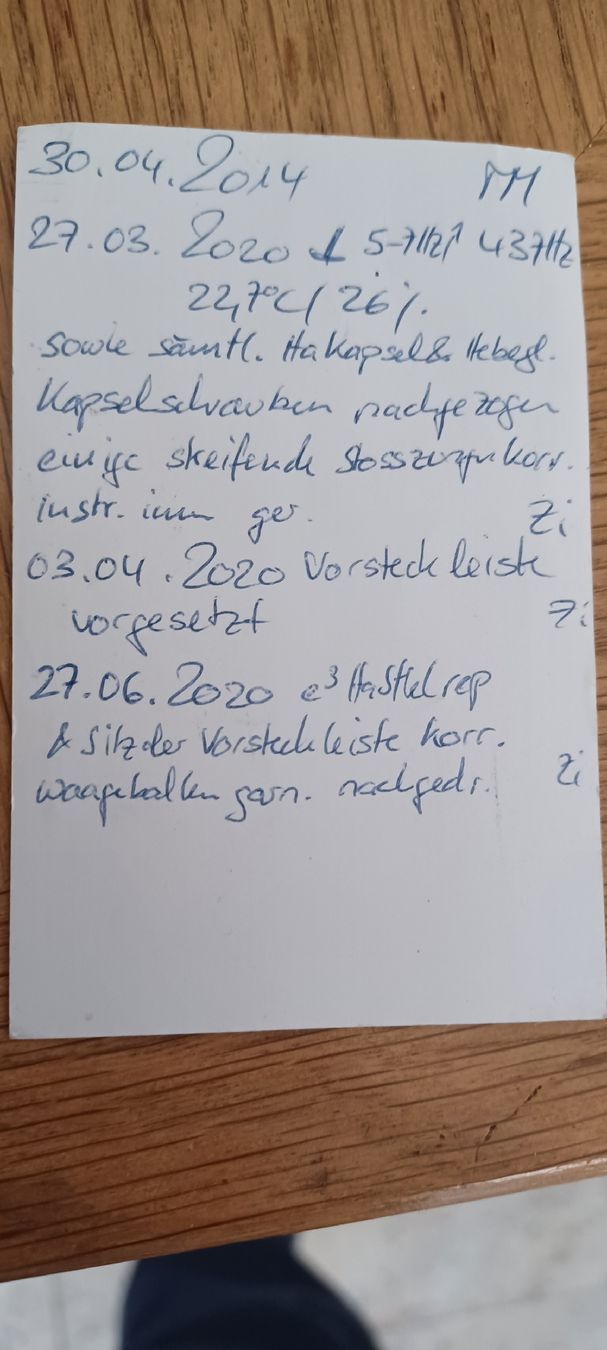 30.04.2014 MM
27.03.2020 5-7Hz↑ 437Hz
22,7°C/26%.
sowie sämtl. HaKapsel & Hebegl.
Kapselschrauben nachgezogen
einige streifende Stosszungen korr.
instr. ger. Zi
03.04.2020 Vorsteckleiste
vorgesetzt Zi
27.06.2020 e³ HaStielrep
& Sitz der Vorsteckleiste korr.
Waageballen garn. nachgedr. Zi